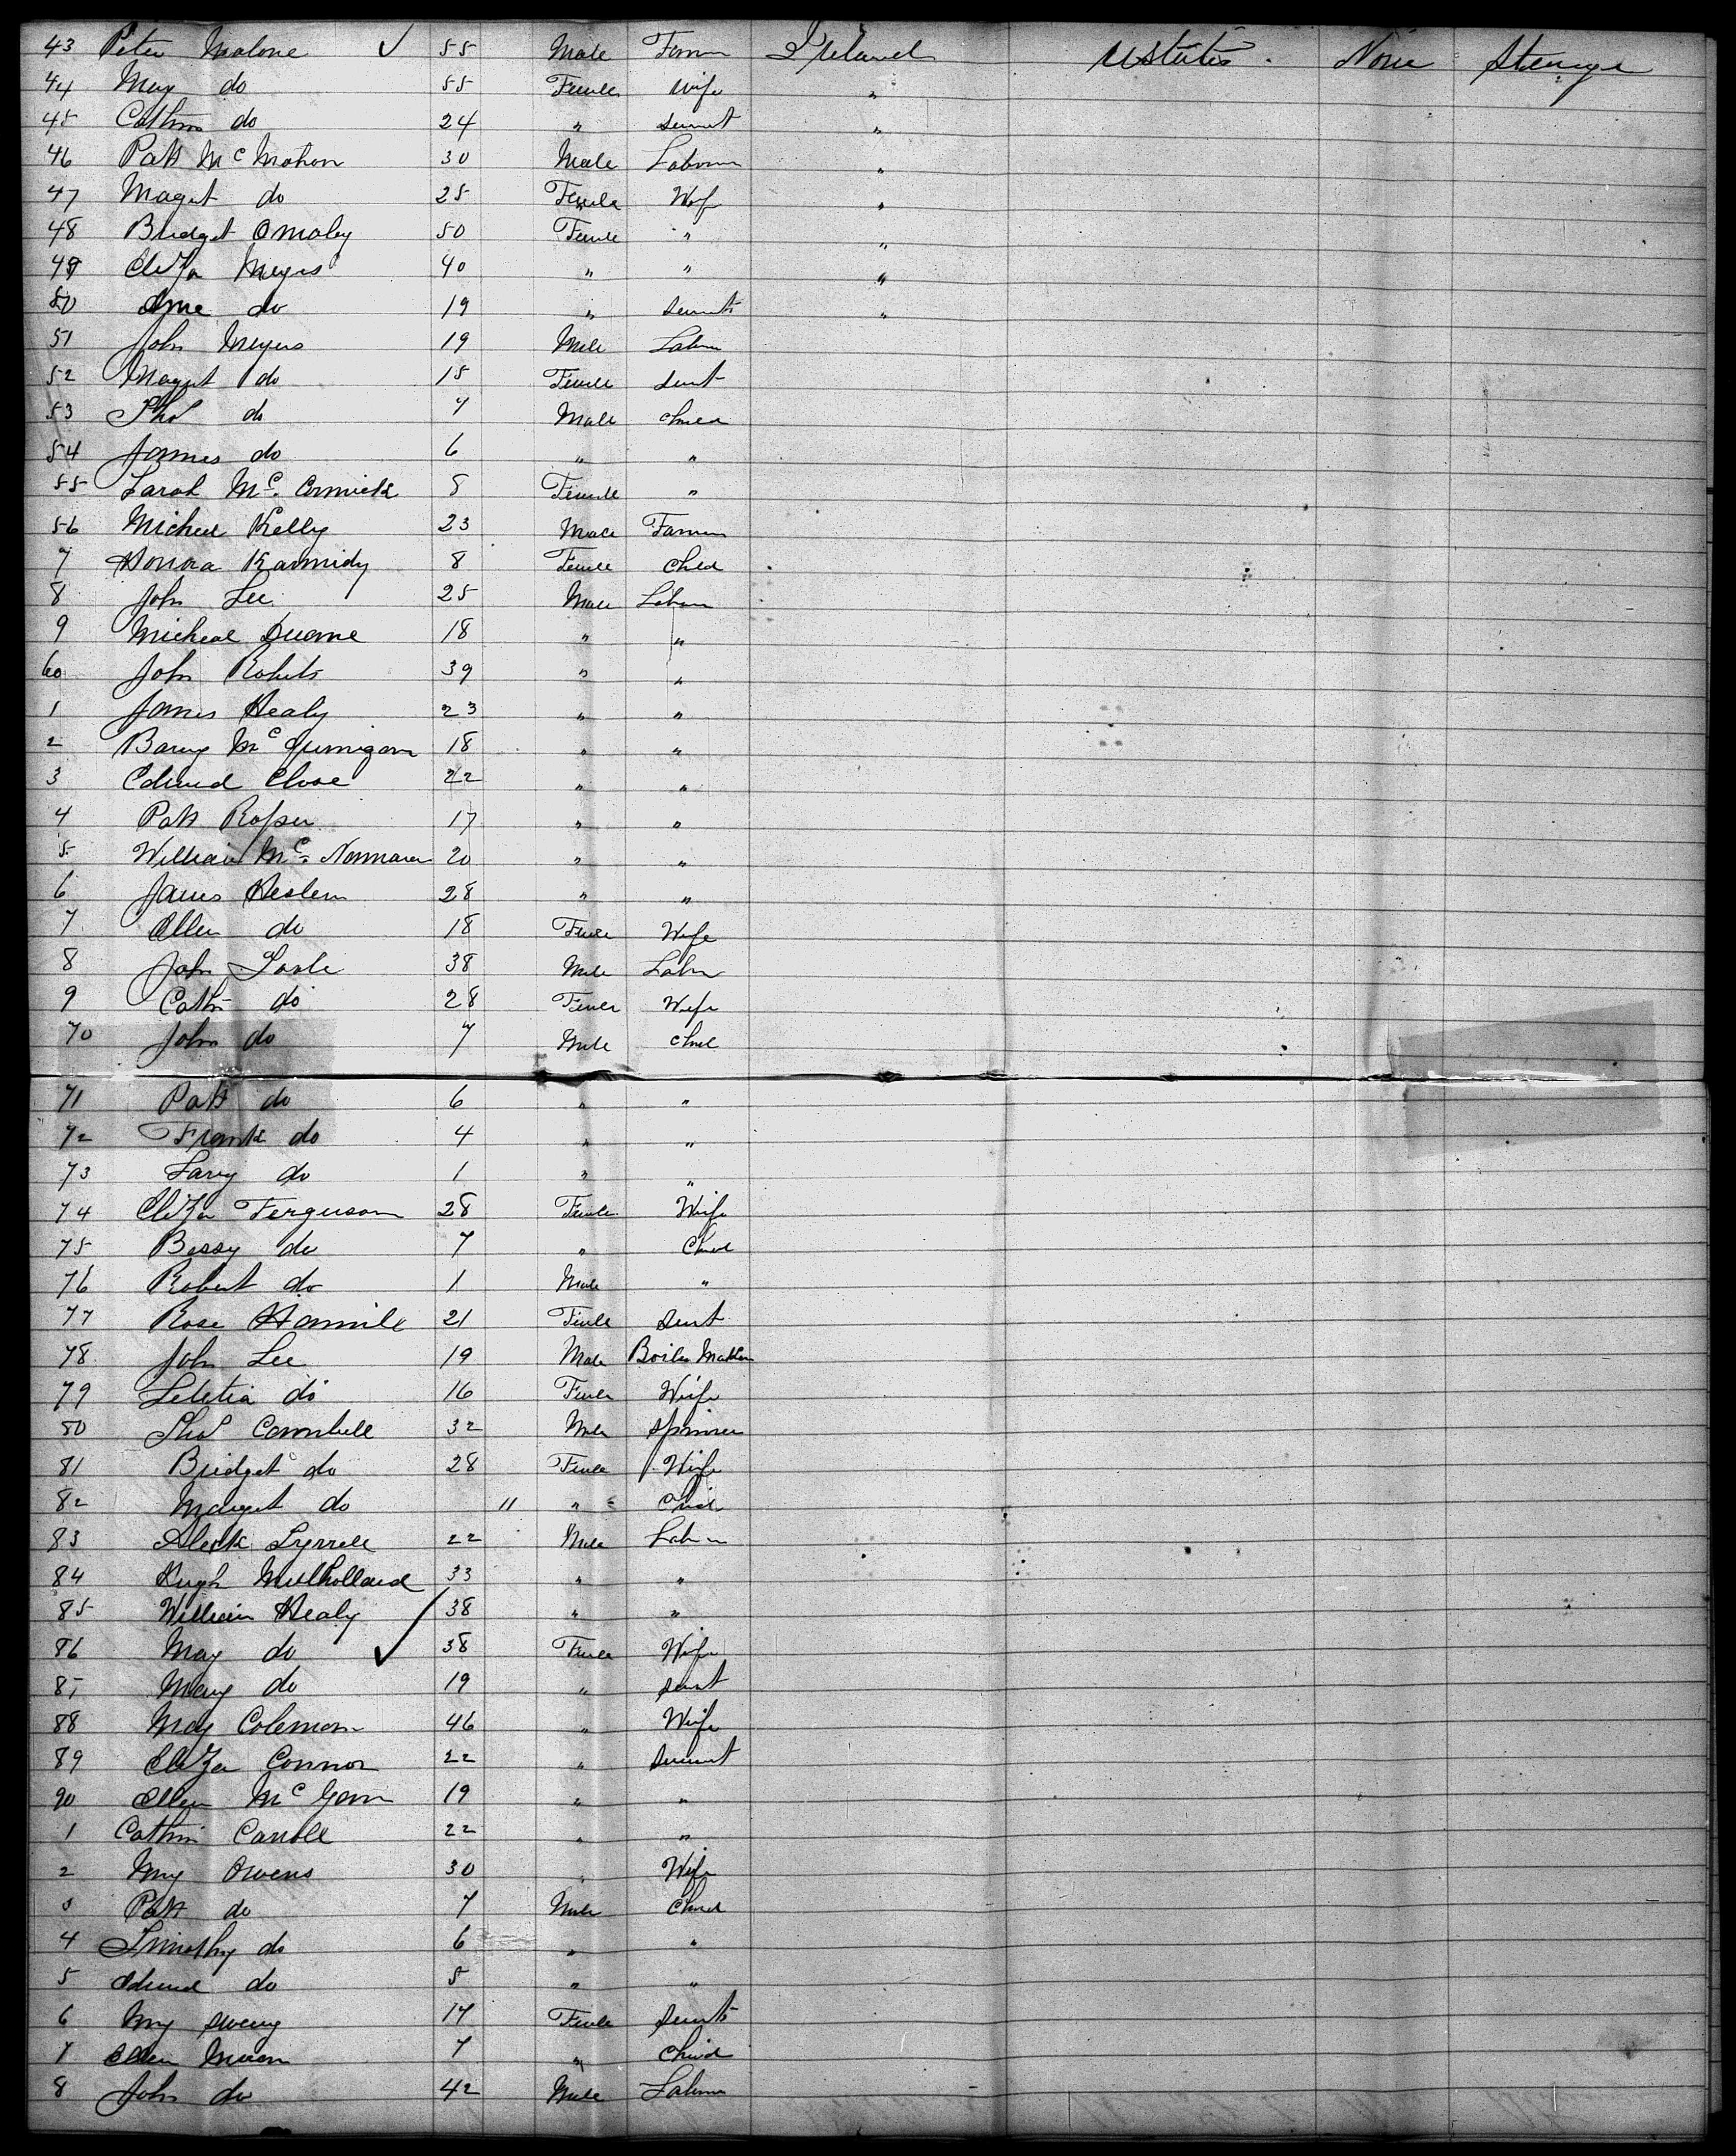 43 Peter Malone ✓ 55 Male Farmr Ireland Ustates. None Steerage
44 Mary do 55 Femle Wife "
45 Cathrn do 24 " Servnt "
46 Patk McMahon 30 Male Laborer "
47 Magrt do 25 Femle Wif "
48 Bridget Omaley 50 Femle " "
49 Eliza Meyrs 40 " " "
50 Ame do 19 " Servnt "
51 John Meyers 19 Male Labor
52 Magrt do 15 Femle Sernt
53 Thos do 7 Male Child
54 James do 6 " "
55 Sarah Mc. Cormick 5 Femle "
56 Micheal Kelly 23 Male Farmer
7 Honora Karmidy 8 Femle Child
8 John Lee 25 Male Labour
9 Micheal Duane 18 " "
60 John Roberts 39 " "
1 James Healy 23 " "
2 Barny Mc Gunnigan 18 " "
3 Edmund Close 22 " "
4 Patk Rosser 17 " "
5 William Mc. Nornaron 20 " "
6 James Heslen 28 " "
7 Ellen do 18 Femle Wife
8 John 38 Male Labr
9 Cathn do 28 Femle Wife
70 John do 7 Male Child
71 Patk do 6 " "
72 Frank do 4 " "
73 Lary do 1 " "
74 Eliza Ferguson 28 Femle Wife
75 Bessy do 7 " Child
76 Robert do 1 Male "
77 Rose Hamill 21 Femle Sernt
78 John Lee 19 Male Boiler Maker
79 Letetia do 16 Femle Wife
80 Thos Cambell 32 Male Spinner
81 Bridget do 28 Femle Wife
82 Marget do 11 " Child
83 Aleck Tyrrell 22 Male Labr
84 Hugh Mulholland 33 " "
85 William Healy 38 " "
86 May do ✓ 38 Femle Wife
87 Mary do 19 " Sernt
88 May Coleman 46 " Wife
89 Eliza Connor 22 " Servnt
90 Ellen Mc Gann 19 " "
1 Cathrin Carroll 22 " "
2 Mry Owens 30 " Wife
3 Patk do 7 Male Child
4 Timothy do 6 " "
5 Edmund do 5 " "
6 Mry Sweny 17 Femle Servnt
7 Ellen Moran 7 " Child
8 John do 42 Male Labour